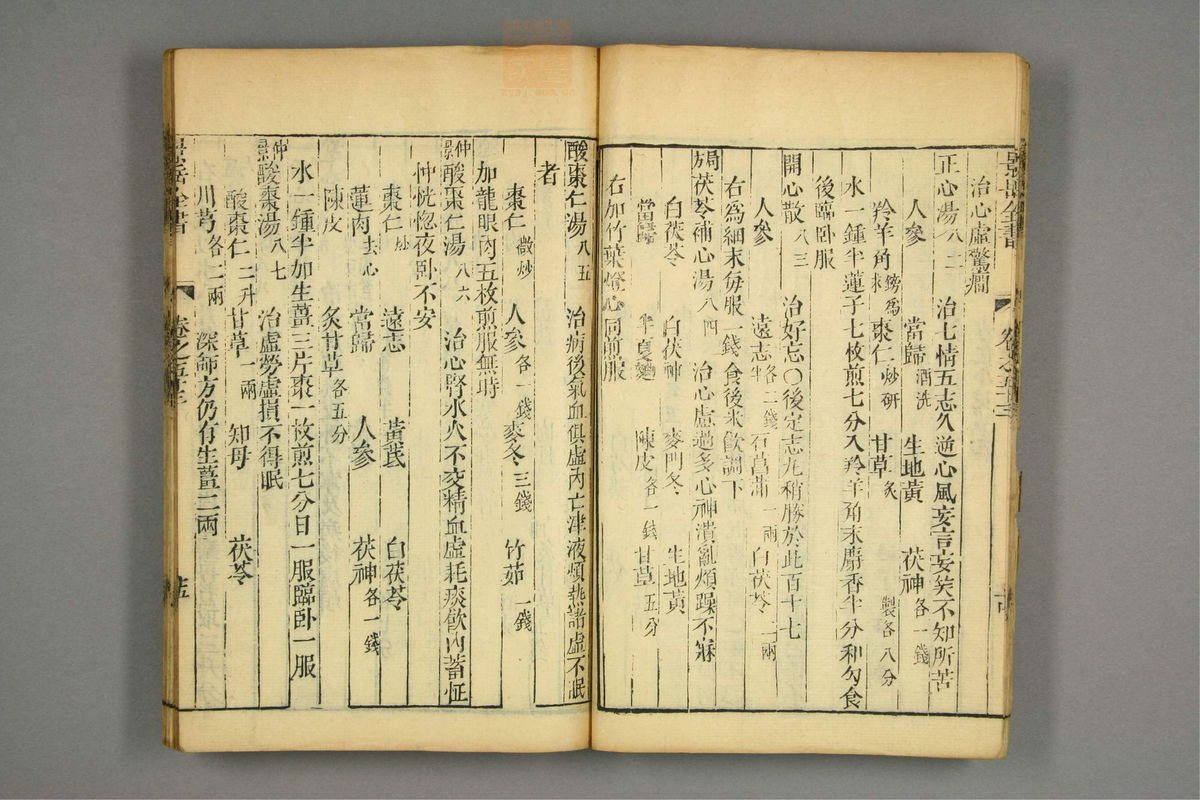 景岳全書
卷之五十三
治心虛驚癎
正心湯八二 治七情五志久逆心風妄言妄笑不知所苦
人參 當歸酒洗 生地黃 茯神各一錢
羚羊角鎊爲末 棗仁炒研 甘草炙 製各八分
水一鍾半蓮子七枚煎七分入羚羊角末麝香半分和勻食
後臨卧服
開心散八三 治好忘○後定志丸稍勝於此百十七
人參 遠志各二錢半 石菖蒲一兩 白茯苓二兩
右爲細末每服一錢食後米飲調下
局茯苓補心湯八四 治心虛 多心神潰亂煩躁不寐
白茯苓 白茯神 麥門冬 生地黃
當歸 半夏 陳皮各一錢 甘草五分
右加竹葉燈心同煎服
酸棗仁湯八五 治病後氣血俱虛內亡津液煩熱諸虛不眠
者
棗仁微炒 人參各一錢 麥冬三錢 竹茹一錢
加龍眼肉五枚煎服無時
仲景酸棗仁湯八六 治心腎水火不交精血虛耗痰飲內蓄怔
忡恍惚夜卧不安
棗仁炒 遠志 黃芪 白茯苓
蓮肉去心 當歸 人參 茯神各一錢
陳皮 炙甘草各五分
水一鍾半加生薑三片棗一枚煎七分日一服臨卧一服
仲景酸棗湯八七 治虛勞虛損不得眠
酸棗仁二升 甘草一兩 知母 茯苓
川芎各二兩 深師方仍有生薑二兩
景岳全書
卷之五十三